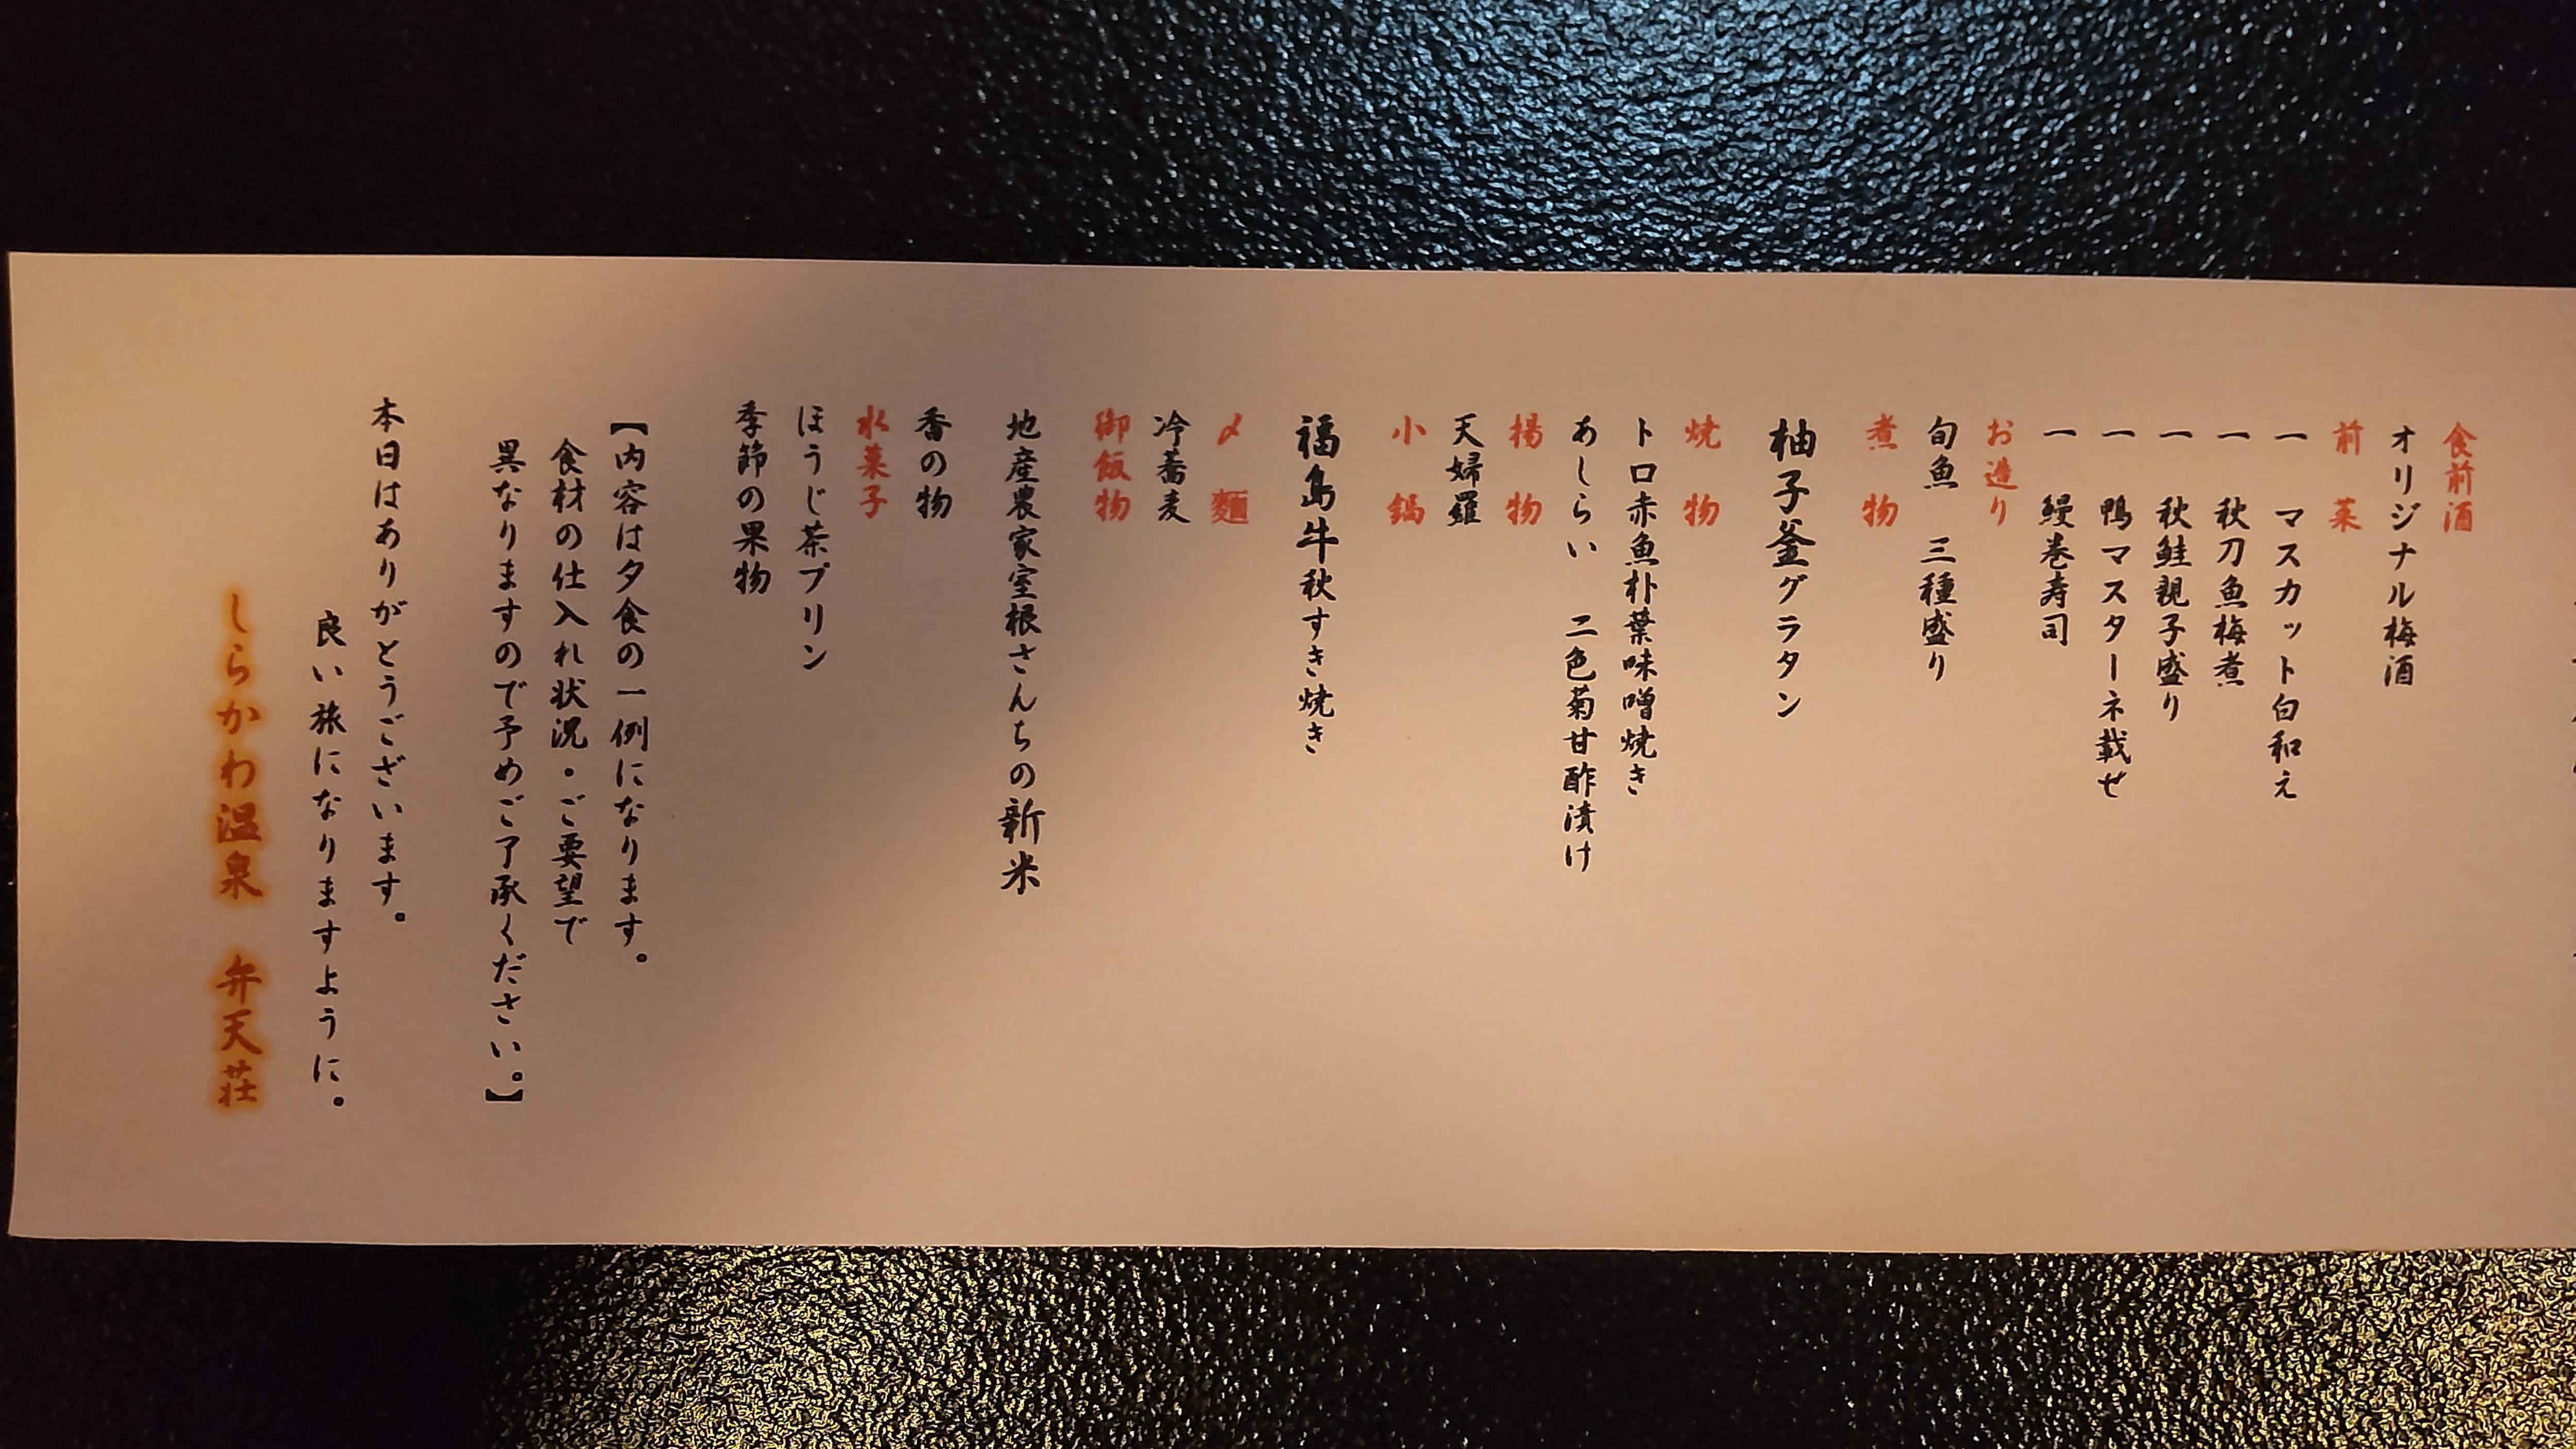 食前酒
オリジナル梅酒
前　菜
一　マスカット白和え
一　秋刀魚梅煮
一　秋鮭親子盛り
一　鴨マスターネ載せ
一　鰻巻寿司
お造り
旬魚　三種盛り
煮　物
柚子釜グラタン
焼　物
トロ赤魚朴葉味噌焼き
あしらい　二色菊甘酢漬け
揚　物
天婦羅
小　鍋
福島牛秋すき焼き
〆　麺
冷蕎麦
御飯物
地産農家室根さんちの新米
香の物
水菓子
ほうじ茶プリン
季節の果物
【内容は夕食の一例になります。
食材の仕入れ状況・ご要望で
異なりますので予めご了承ください。】
本日はありがとうございます。
良い旅になりますように。
しらかわ温泉　弁天荘